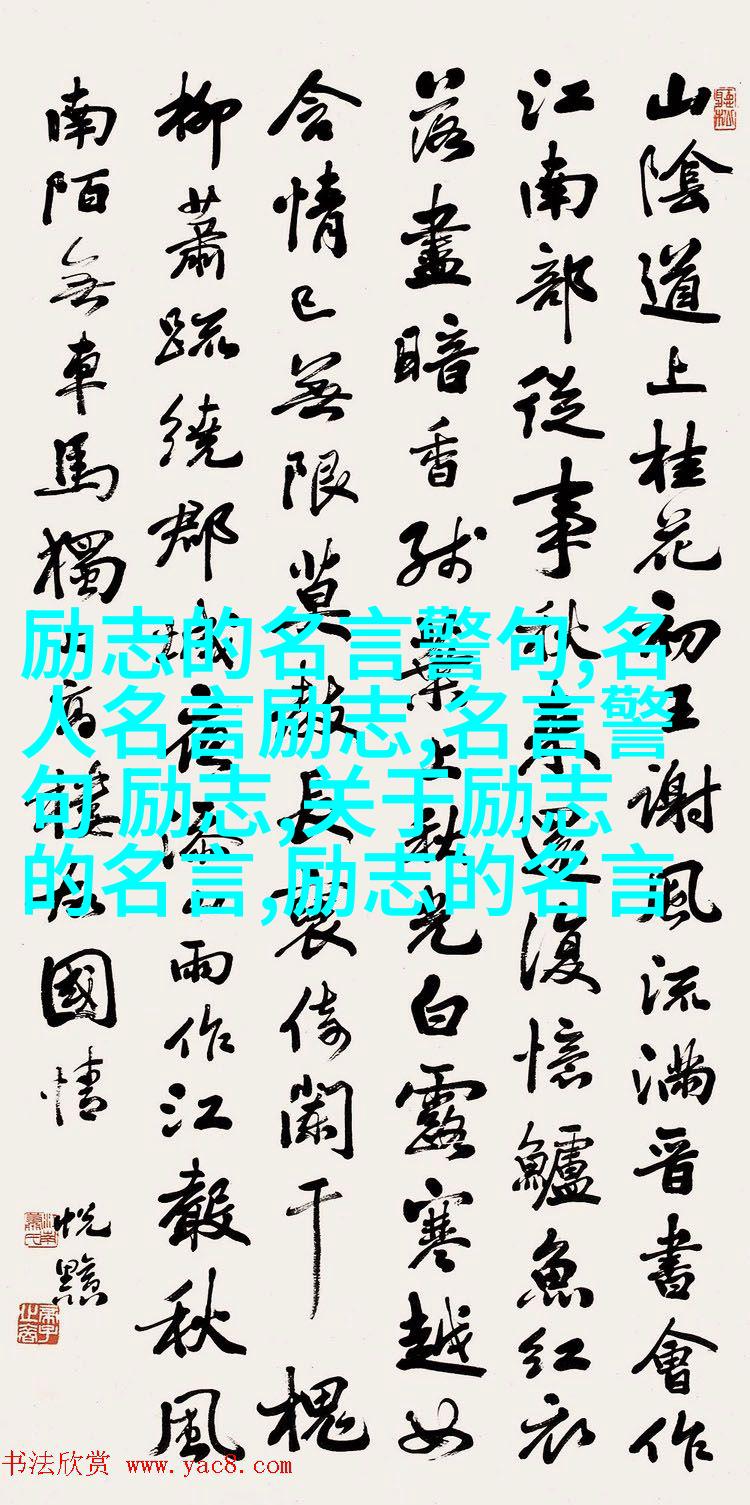 山陰道上桂花初王謝風流滿晋書會作
江南部從事秋來還復憶鱸魚紅衣
落盡暗香殘葉上秋光白露寒越女
含情已無限莫教長倚闌干槐
柳蕭疏繞郡城添雨作江聲秋風
南陌無車馬獨上高樓故國情
励志的名言警句,名
人名言励志,名言警
句 励志,关于励志
的名言,励志的名言
书法欣赏 www.yac8.com